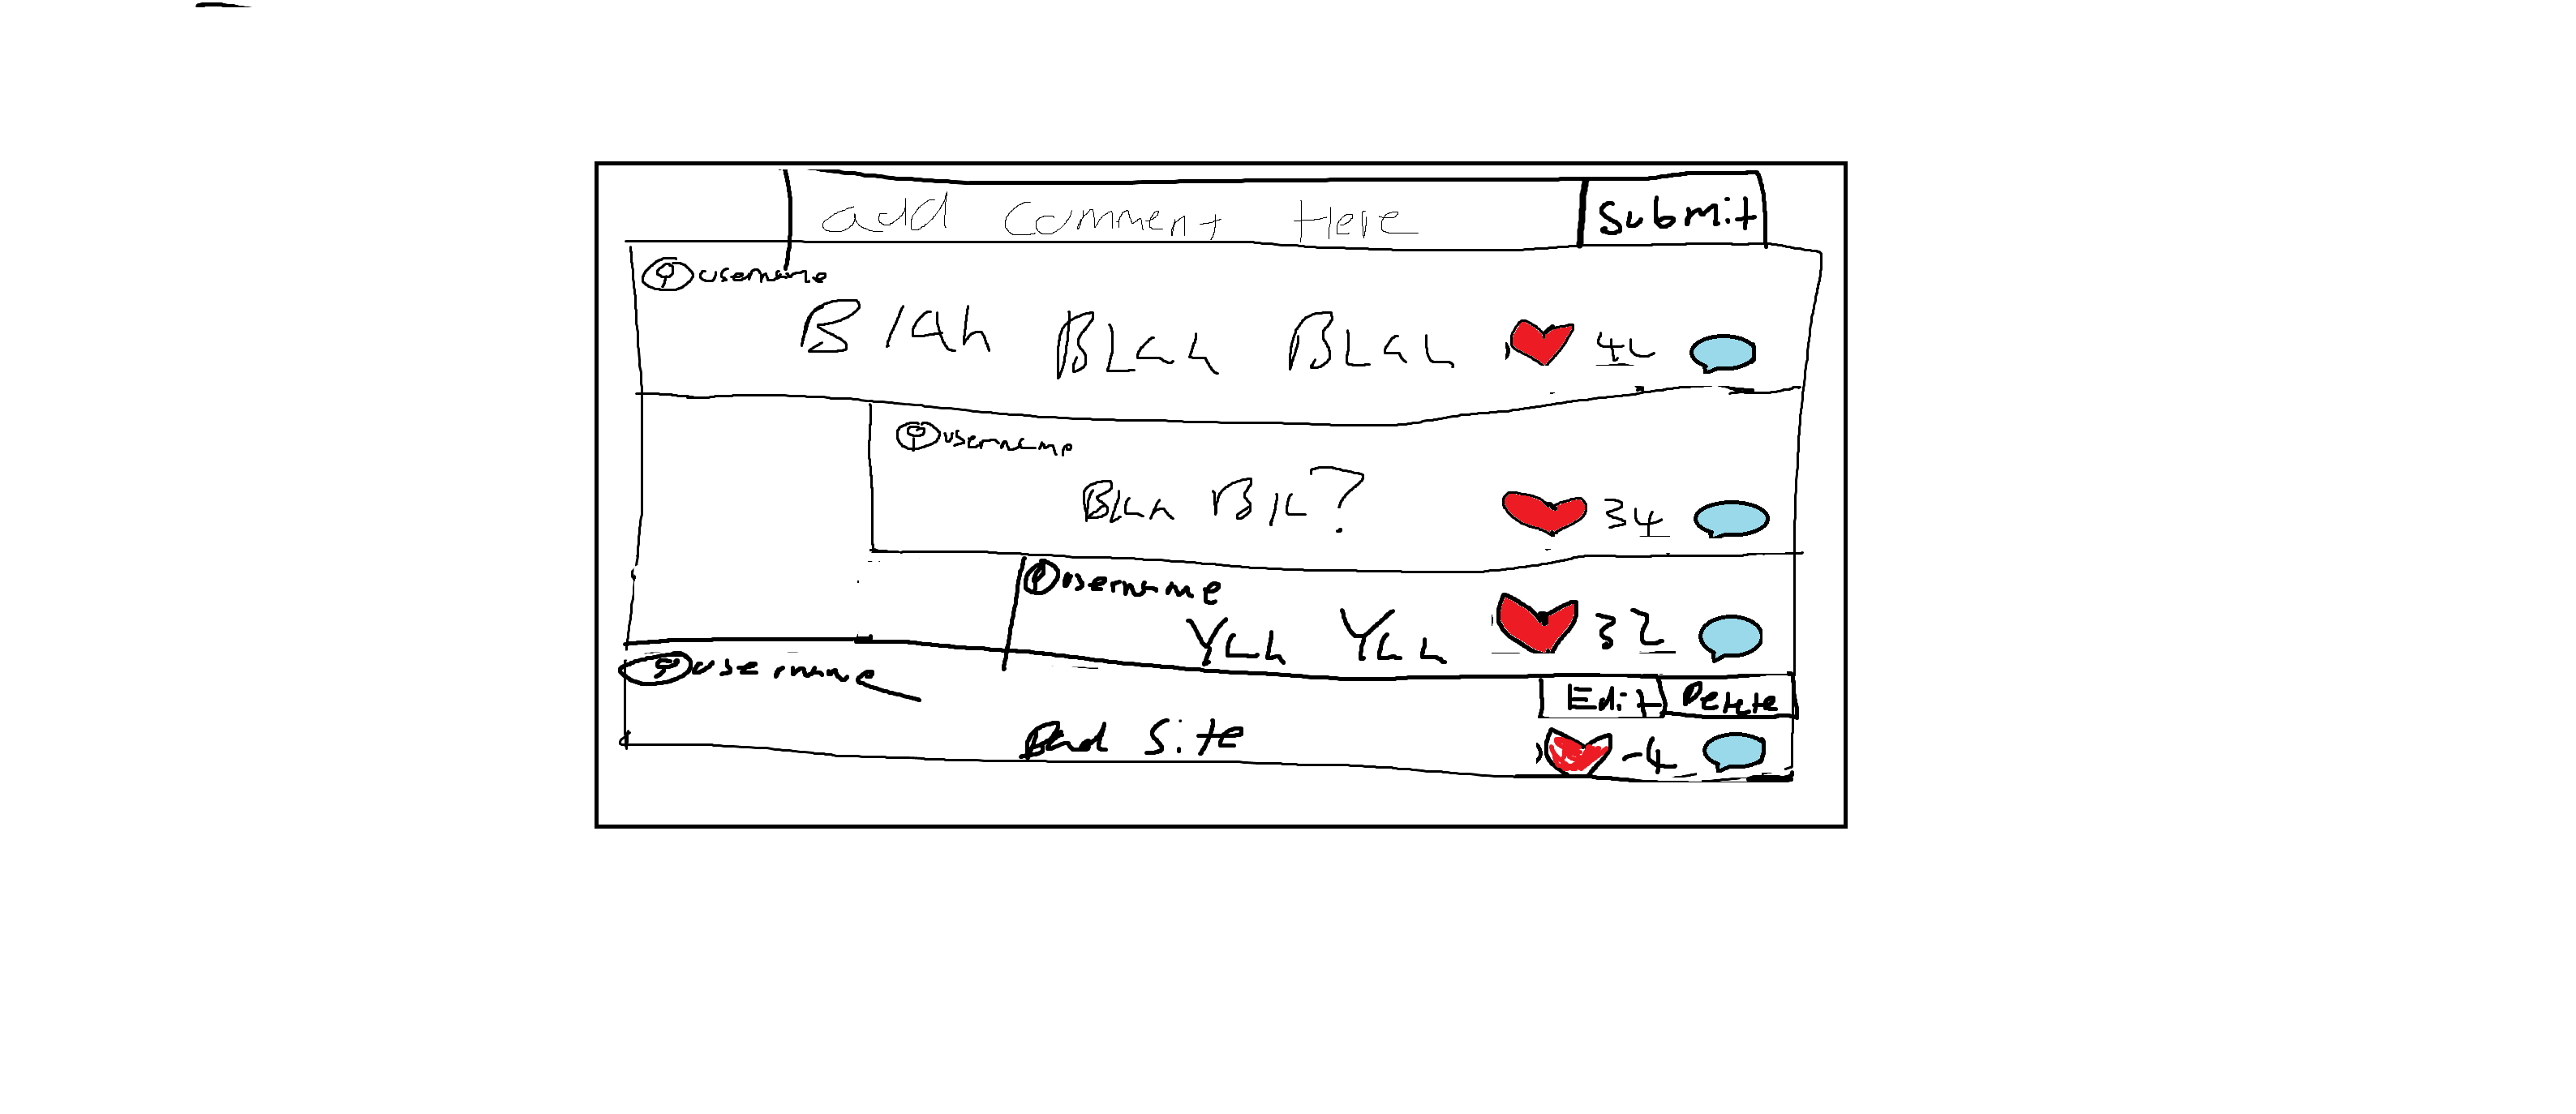 add comment Here
Submit
username
Blah Blah Blah
username
Blah ?
34
username
Yah Yah
32
username
Edit Delete
Bad Site
-4